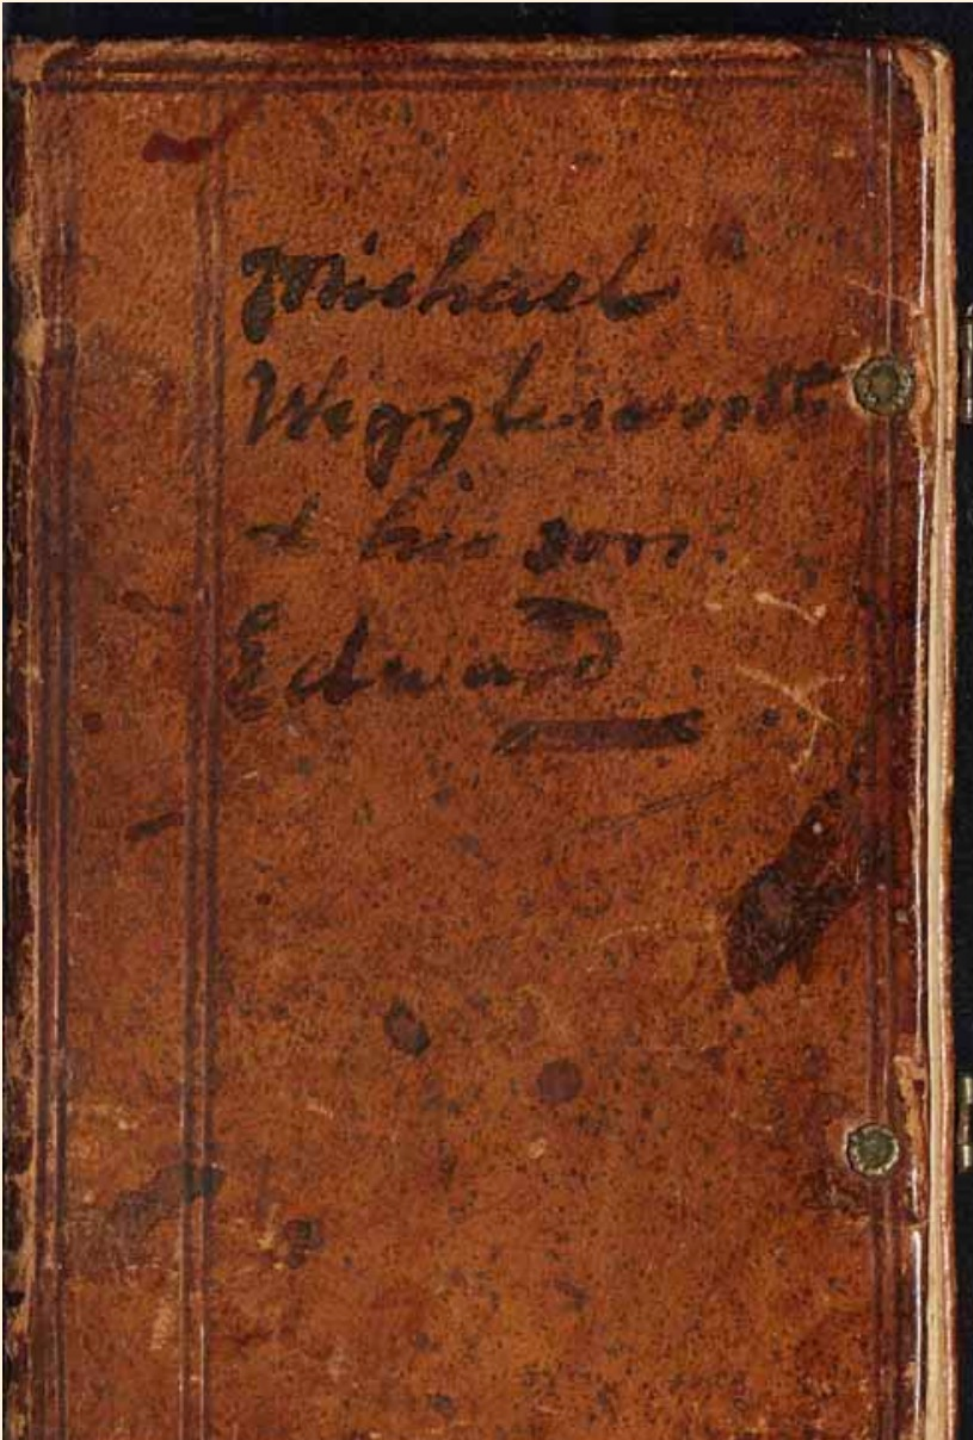 Michael
Wigglesworth
& his son.
Edward